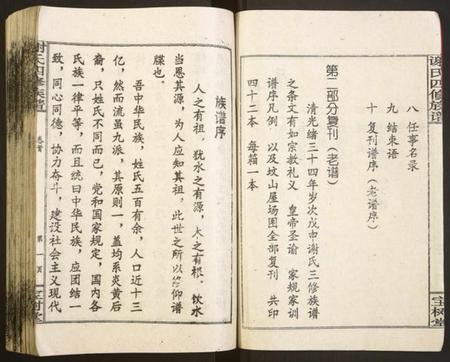 谢氏四修族谱
八 任事名录
九 结束语
十 复刊谱序（老谱序）
第二部分复刊（老谱）
清光绪三十四年岁次戊申谢氏三修族谱
之条文有如宗教礼义 皇帝圣谕 家规家训
谱序凡例 以及坟山屋场图全部复刊 共印
四十二本 每箱一本
宝树堂
族谱序
人之有祖，犹水之有源，木之有根。饮水
当思其源，为人应知其祖，此世之所以修仰谱
牒也。
吾中华民族，姓氏五百有余，人口近十三
亿，然而流虽九派，其原则一，盖均系炎黄后
裔，只姓氏不同而已，党和国家规定，国内各
民族一律平等，而且统曰中华民族，应团结一
致，同心同德，协力奋斗，建设社会主义现代
谢氏四修族谱
第一页
宝树堂